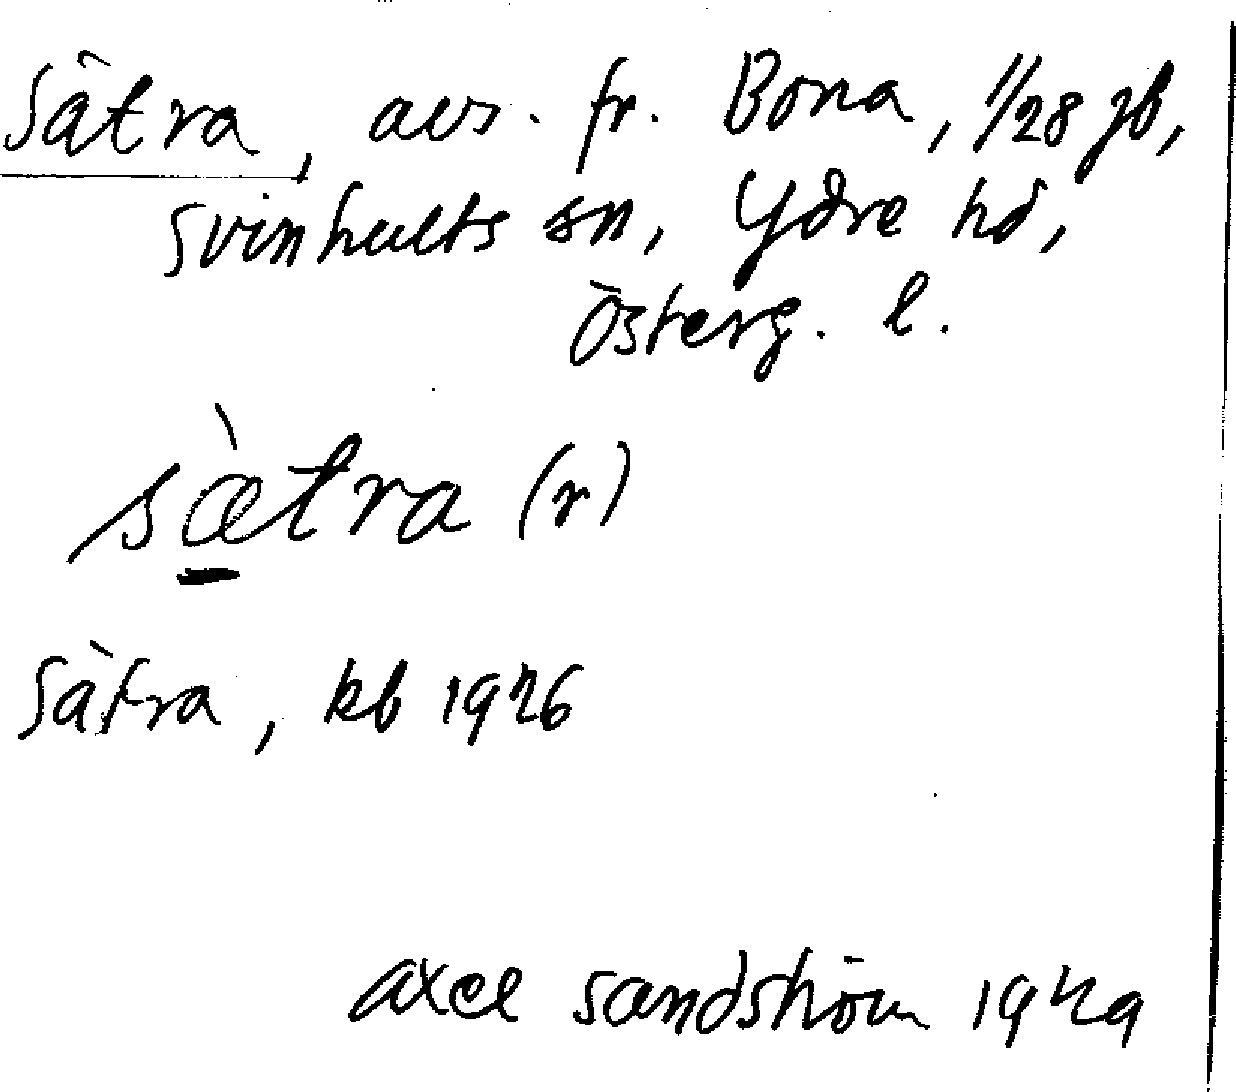 Sätra, avs. fr. Bona, 1/28 jb,
Svinhults sn, Ydre hd,
Österg. l.
sæ̀tra (r)
Sätra, kb 1926
Axel Sandström 1929